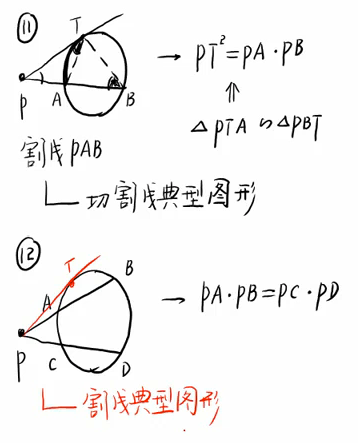 ⑪
T
P A B
→ PT²=PA·PB
⇑
△PTA ∽ △PBT
割线PAB
切割线典型图形
⑫
T
A B
P C D
→ PA·PB=PC·PD
割线典型图形